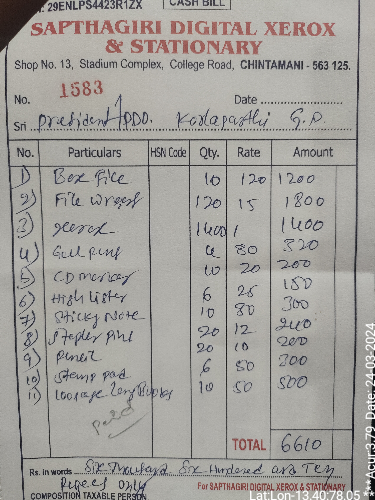 . 29ENLPS4423R1ZX CASH BILL
SAPTHAGIRI DIGITAL XEROX
& STATIONARY
Shop No. 13, Stadium Complex, College Road, CHINTAMANI - 563 125.
No. 1583 Date
Sri President/PDO. G.P.
No. Particulars HSN Code Qty. Rate Amount
1) Box File 10 120 1200
2) File 120 15 1800
3) Xerox 1400 1 1400
4) Gum 4 80 320
5) CD marker 10 20 200
6) High lister 6 25 150
7) Sticky Note 10 80 300
8) Stapler pins 20 12 240
9) Pencil 20 10 200
10) Stamp pad 6 50 300
11) 10 50 500
paid
TOTAL 6610
Rs. in words Six Thousand Six Hundered and Ten
Rupees Only
COMPOSITION TAXABLE PERSON For SAPTHAGIRI DIGITAL XEROX & STATIONARY
Lat:Lon-13.40:78.05**
**Acur:3.79 Date: 24-03-2024